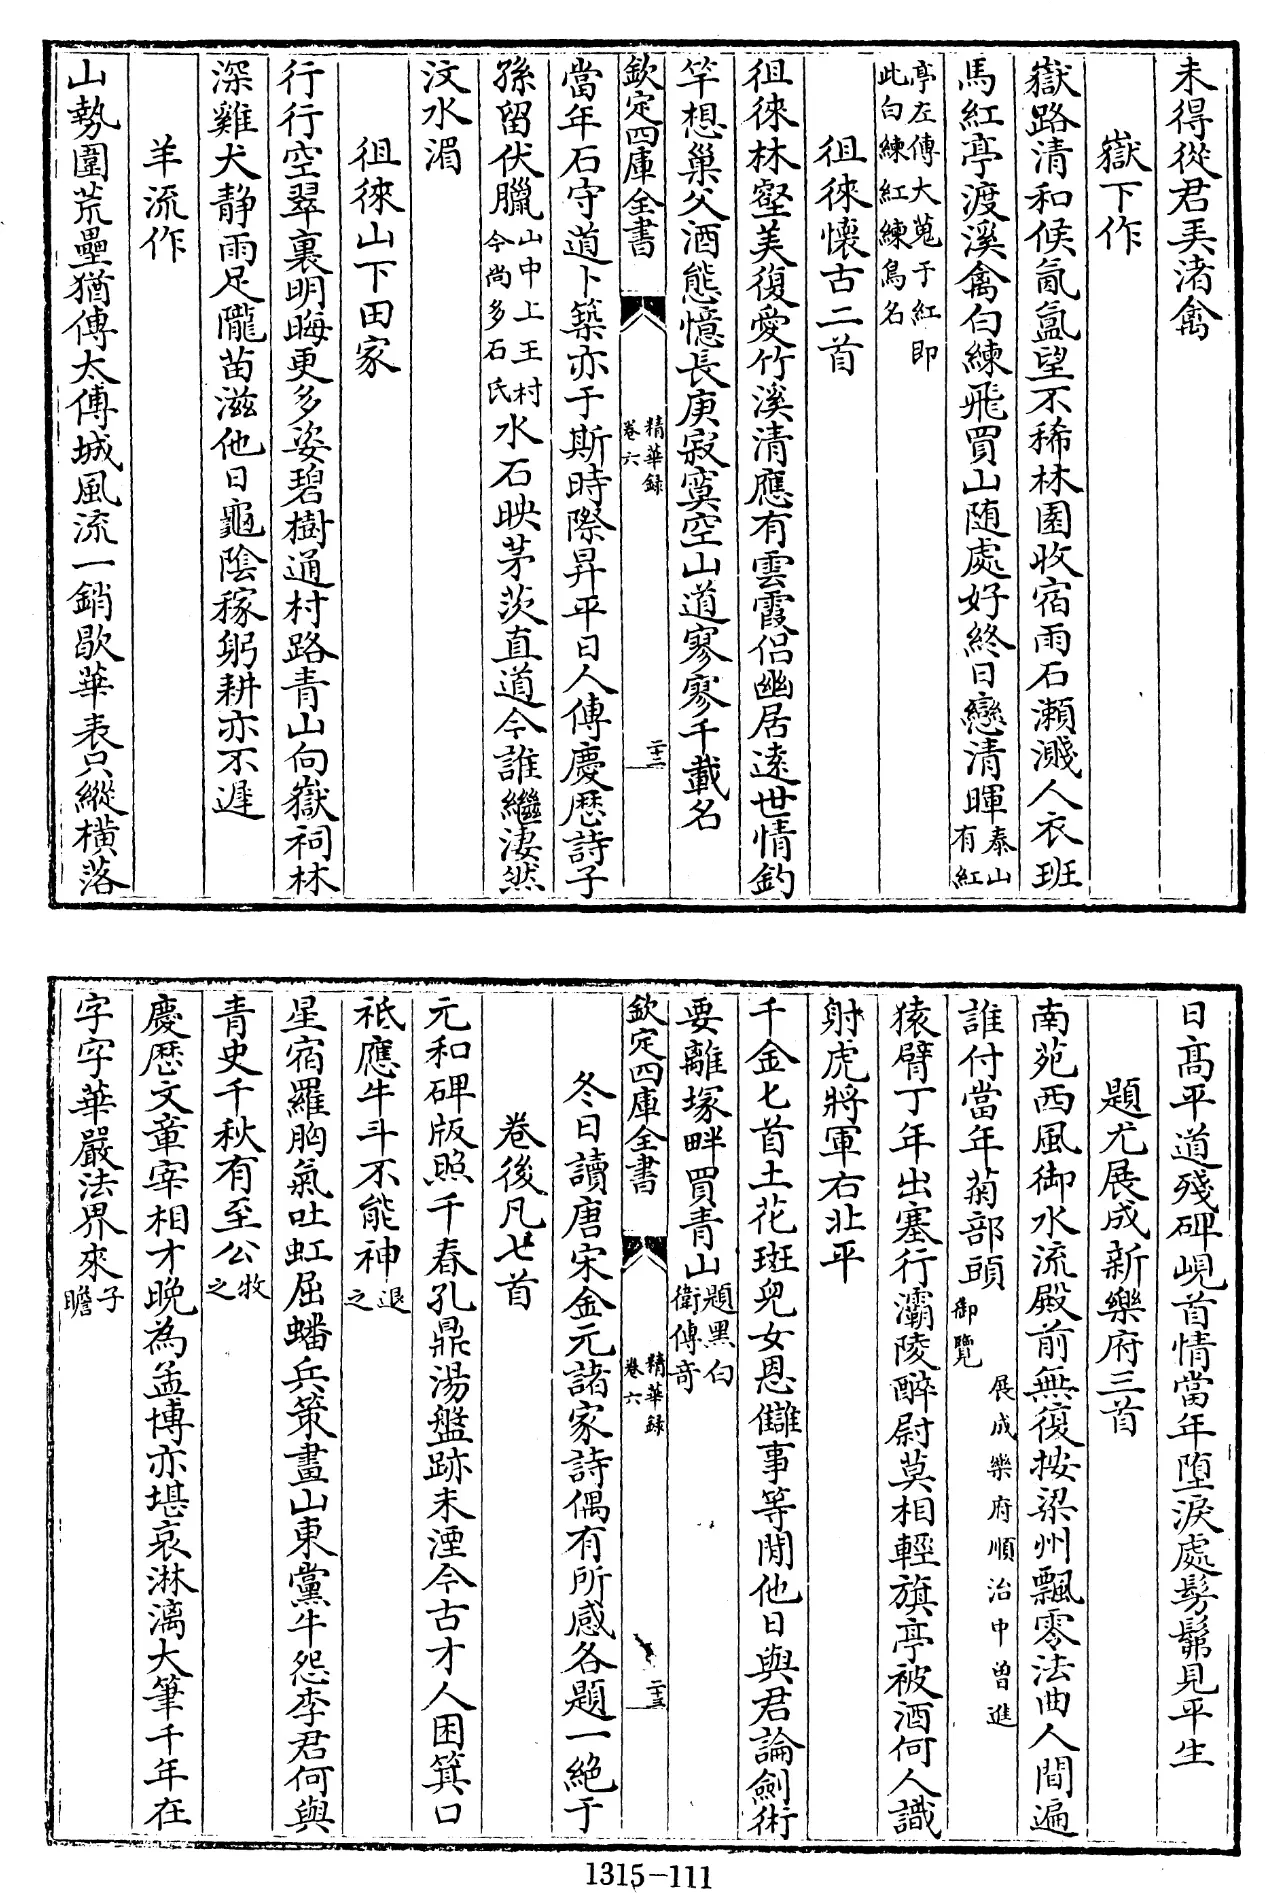 未得從君弄渚禽
嶽下作
嶽路清和候氤氳望不稀林園收宿雨石瀨濺人衣班
馬紅亭渡溪禽白練飛買山随處好終日戀清暉泰山有紅
亭左傳大蒐于紅即此白練紅練鳥名
徂徠懷古二首
徂徠林壑美復愛竹溪清應有雲霞侣幽居逺世情釣
竿想巢父酒態憶長庚寂寞空山道寥寥千載名
欽定四庫全書
精華錄
卷六
二十二
當年石守道卜築亦于斯時際昇平日人傳慶歴詩子
孫留伏臘山中上王村今尚多石氏水石映茅茨直道今誰繼淒然
汶水湄
徂徠山下田家
行行空翠裏明晦更多姿碧樹通村路青山向嶽祠林
深雞犬静雨足隴苗滋他日龜陰稼躬耕亦不遲
羊流作
山勢圍荒壘猶傳太傅城風流一銷歇華表只縱橫落
日髙平道殘碑峴首情當年墮淚處髣髴見平生
題尤展成新樂府三首
南苑西風御水流殿前無復按梁州飄零法曲人間遍
誰付當年菊部頭展成樂府順治中曽進御覽
猿臂丁年出塞行灞陵醉尉莫相輕旗亭被酒何人識
射虎將軍右北平
千金匕首土花斑兒女恩讎事等閒他日與君論劍術
要離塚畔買青山題黑白衛傳奇
欽定四庫全書
精華錄
卷六
二十三
冬日讀唐宋金元諸家詩偶有所感各題一絶于
卷後凡七首
元和碑版照千春孔鼎湯盤跡未湮今古才人困箕口
祗應牛斗不能神退之
星宿羅胸氣吐虹屈蟠兵策畫山東黨牛怨李君何與
青史千秋有至公牧之
慶歴文章宰相才晩為孟博亦堪哀淋漓大筆千年在
字字華嚴法界來子瞻
1315-111